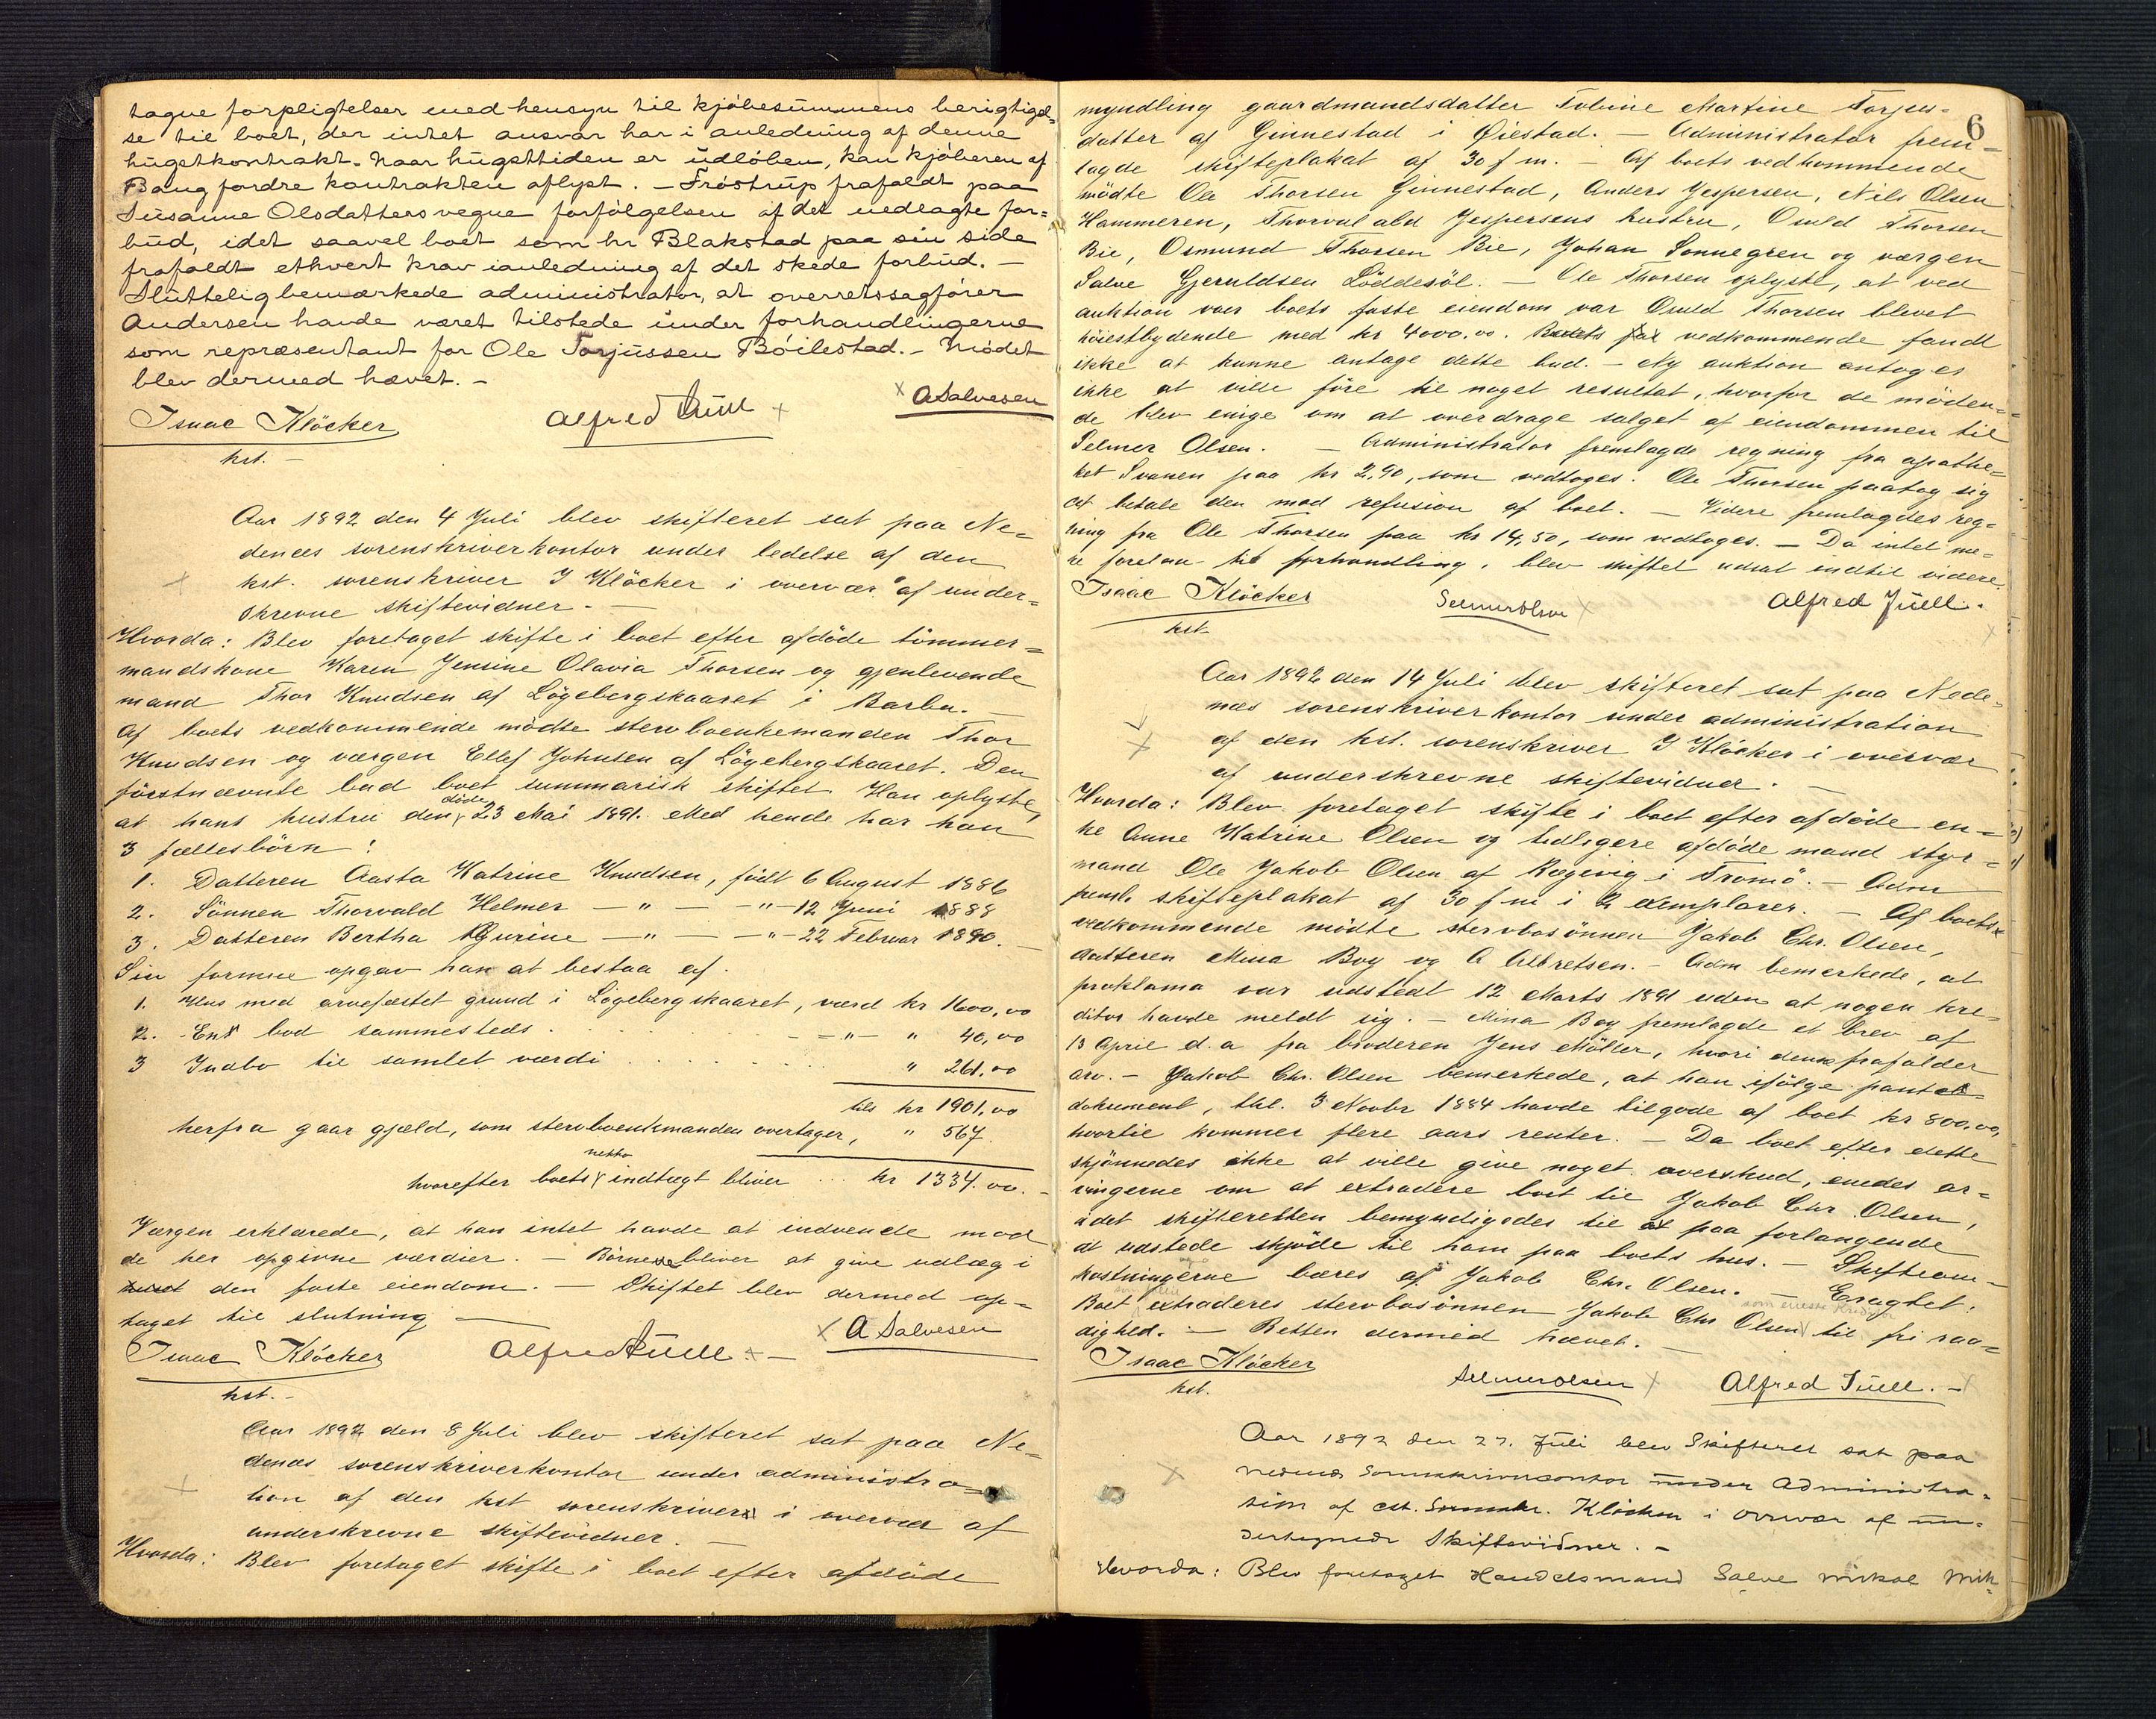 tagne forpligtelser med hensyn til kjöbesummens berigtigel=
se til boet, der intet ansvar har i anledning af denne
hugstkontrakt. Naar hugsttiden er udlöben, kan kjöberen af
Bang fordre kontrakten aflyst. – Fröstrup frafaldt paa
Susanne Olsdatters vegne forfölgelsen af det nedlagte for=
bud, idet saavel boet som hr Blakstad paa sin side
frafaldt ethvert krav ianledning af det skede forbud. –
Slutteligbemærkede administrator, at overretssagförer
Andersen havde været tilstede under forhandlingerne
som repræsentant for Ole Torjussen Böilestad. – Mödet
blev dermed hævet. –
Isaac Klöcker Alfred Juell x x ASalvesen
kst. –
Aar 1892 den 4 Juli blev skifteret sat paa Ne=
denæs sorenskriverkontor under ledelse af den
x kst. sorenskriver I Klöcker i overvær af under=
skrevne skiftevidner. –
Hvorda: Blev foretaget skifte i boet efter afdöde tömmer=
mandskone Karen Jensine Olavia Thorsen og gjenlevende
mand Thor Knudsen af Lögebergskaaret i Barbu. –
Af boets vedkommende mödte stervboenkemanden Thor
Knudsen og værgen Ellef Johnsen af Lögebergskaaret. Den
förstnævnte bad boet summarisk skiftet. Han oplyste,
at hans hustru döde den 23 Mai 1891. Med hende har han
3 fællesbörn:
1. Datteren Aasta Katrine Knudsen, födt 6 August 1886
2. Sönnen Thorvald Helmer – " – – " – 12 Juni 1888
3. Datteren Bertha Gurine – " – – " – 22 Februar 1890. –
Sin formue opgav han at bestaa af.
1. Hus med arvefæstet grund i Lögebergskaaret, værd kr 1600,00
2. En bod sammesteds . . . – " – " 40,00
3 Indbo til samlet værdi . . . . " 261,00
tils kr 1901,00
herfra gaar gjæld, som stervboenkemanden overtager, " 567.
hvorefter boets netto indtægt bliver ... kr 1334.00. –
Værgen erklærede, at han intet havde at indvende mod
de her opgivne værdier. – Börnene bliver at give udlæg i
den faste eiendom. – Skiftet blev dermed op=
taget til slutning –
Isaac Klöcker Alfred Juell x – x A Salvesen
kst. –
Aar 1892 den 8 Juli blev skifteret sat paa Ne=
denæs sorenskriverkontor under administra=
x tion af den kst sorenskriver i overvær af
underskrevne skiftevidner. –
Hvorda: Blev foretaget skifte i boet efter afdöde
6
myndling gaardmandsdatter Tobine Martine Torjus=
datter af Ginnestad i Öiestad. – Administrator frem=
lagde skifteplakat af 30 f m. – Af boets vedkommende
mödte Ole Thorsen Ginnestad, Anders Jespersen, Nils Olsen
Hammeren, Thorvald Jespersens hustru, Osuld Thorsen
Bie, Osmund Thorsen Bie, Johan Sonnegren og værgen
Salve Gjeruldsen Löddesöl. – Ole Thorsen oplyste, at ved
auktion over boets faste eiendom var Osuld Thorsen blevet
höiestbydende med kr 4000.00. Boets vedkommende fandt
ikke at kunne antage dette bud. – Ny auktion antoges
ikke at ville före til noget resultat, hvorfor de möden=
de blev enige om at overdrage salget af eiendommen til
Selmer Olsen. – Administrator fremlagde regning fra apothe=
ket Svanen paa kr 2,90, som vedtoges. Ole Thorsen paatog sig
at betale den mod refusion af boet. – Videre fremlagdes reg=
ning fra Ole Thorsen paa kr 14,50, som vedtoges. – Da intet me=
re forelaa til forhandling, blev skiftet udsat indtil videre.
Isaac Klöcker SelmerOlsen x Alfred Juell. x
kst.
Aar 1892 den 14 Juli blev skifteret sat paa Nede=
næs sorenskriverkontor under administration
x af den kst. sorenskriver I Klöcker i overvær
af underskrevne skiftevidner. –
Hvorda: Blev foretaget skifte i boet efter afdöde en=
ke Anne Katrine Olsen og tidligere afdöde mand styr=
mand Ole Jakob Olsen af Rægevig i Tromö. – Adm
freml. skifteplakat af 30 f m i 2 exemplarer. – Af boets
vedkommende mödte stervbosönnen Jakob Chr. Olsen,
datteren Mina Boy og A Albretsen. – Adm bemerkede, at
proklama var udstedt 12 Marts 1891 uden at nogen kre=
ditor havde meldt sig. – Mina Boy fremlagde et brev af
13 April d. a fra broderen Jens Möller, hvori denne frafalder
arv. – Jakob Chr. Olsen bemerkede, at han ifölge pante=
dokument, thl. 3 Novbr 1884 havde tilgode af boet kr 800,00,
hvortil kommer flere aars renter. – Da boet efter dette
skjönnedes ikke at ville give noget overskud, enedes ar=
vingerne om at extradere boet til Jakob Chr. Olsen,
idet skifteretten bemyndigedes til paa forlangende
at udstede skjöde til ham paa boets hus. – Skifteom=
kostningerne bæres af Jakob Chr. Olsen. – Eragtet:
Boet extraderes stervbosönnen Jakob Chr Olsen som eneste kreditor til fri raa=
dighed. – Retten dermed hævet. –
Isaac Klöcker Selmer Olsen x Alfred Juell. – x
kst.
Aar 1892 den 27. Juli blev Skifteret sat paa
x Nedenæs Sorenskriverkontor under Administra=
tion af cst. Sorenskr. Klöcker i Overvær af un=
dertegnede Skiftevidner. –
Hvorda: Blev foretaget Handelsmand Salve Mikal Mik=